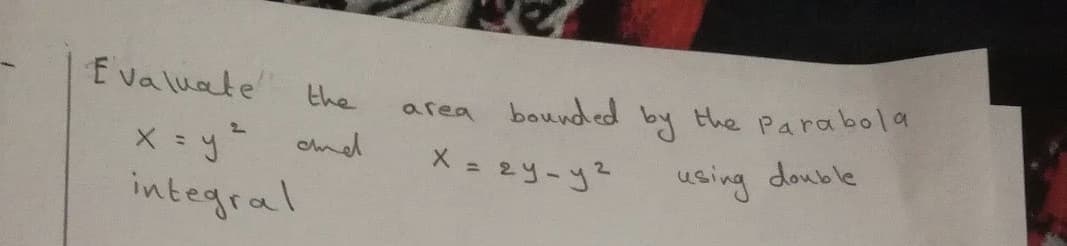 Evaluate the area bounded by the Parabola
x = y² and x = 2y - y² using double
integral